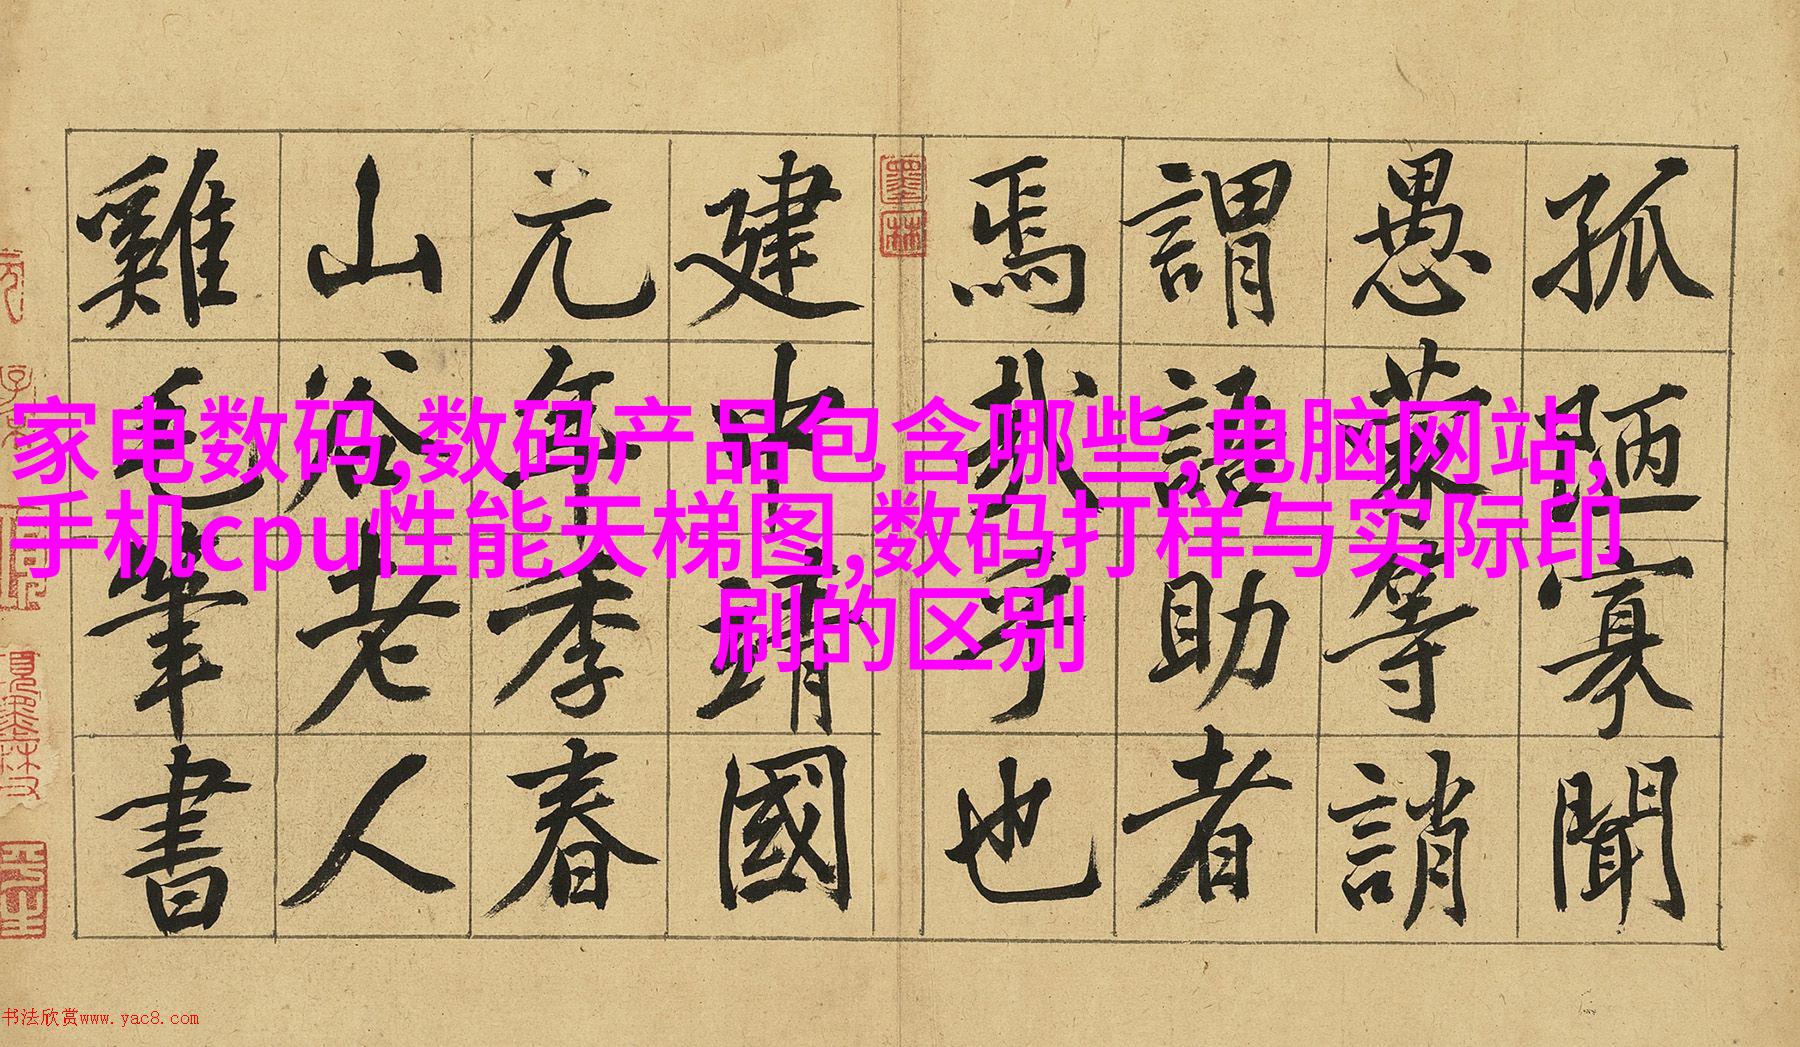 家电数码,数码产品包含哪些,电脑网站,
手机cpu性能天梯图,数码打样与实际印
刷的区别
孤陋寡聞
愚蒙等誚
謂語助者
焉哉乎也
墨林
建中靖國
元年季春
山谷老人
雞毛筆書
书法欣赏www.yac8.com